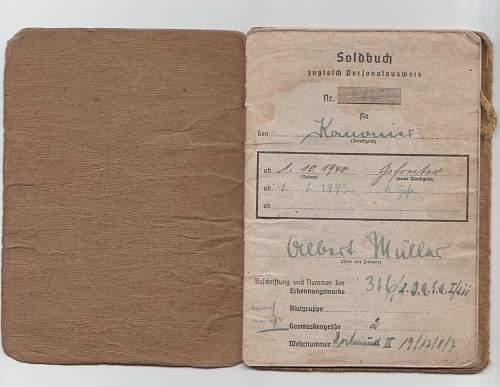 Soldbuch
zugleich Personalausweis
Nr.
für
den Kanonier
(Dienstgrad)
ab 1. 10. 1940 Gefreiter
(Datum) (neuer Dienstgrad)
ab 1. 1. 1943 O. Gefr.
ab
Albert Müller
(Vor- und Zuname)
Beschriftung und Nummer der
Erkennungsmarke 316/
Blutgruppe
Gasmaskengröße 2
Wehrnummer Dortmund II 19/12/8/7